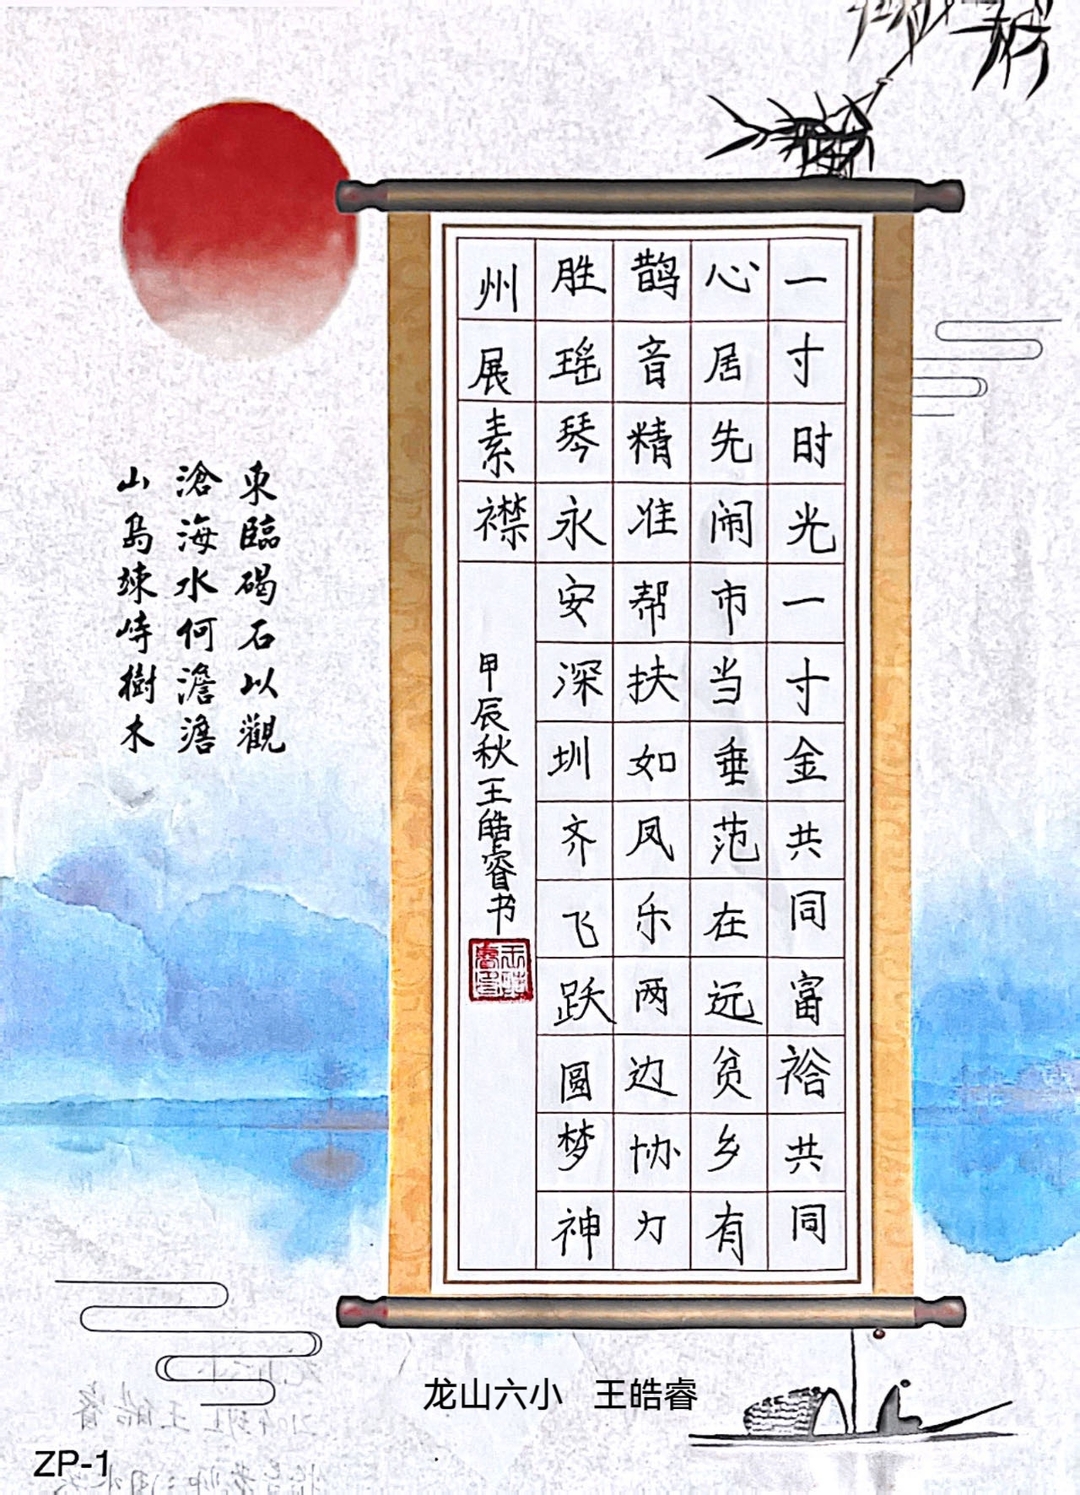 一寸时光一寸金共同富裕共同
心居先闹市当垂范在远贫乡有
鹊音精准帮扶如凤乐两边协力
胜瑶琴永安深圳齐飞跃圆梦神
州展素襟
甲辰秋王皓睿书
東臨碣石以觀
滄海水何澹澹
山島竦峙樹木
龙山六小 王皓睿
ZP-1